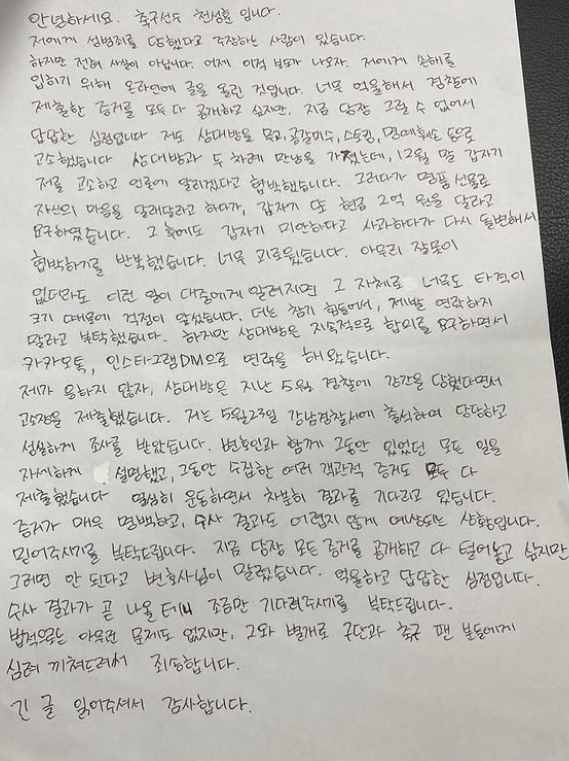 안녕하세요. 축구선수 천성훈 입니다.
저에게 성범죄를 당했다고 주장하는 사람이 있습니다.
하지만 전혀 사실이 아닙니다. 어제 이적 보도가 나오자. 저에게 손해를
입히기 위해 온라인에 글을 올린 것입니다. 너무 억울해서 경찰에
제출한 증거를 모두 다 공개하고 싶지만. 지금 당장 그럴 수 없어서
답답한 심정입니다 저도 상대방을 무고, 공갈미수, 스토킹, 명예훼손 등으로
고소했습니다 상대방과 두 차례 만남을 가졌는데, 12월 말 갑자기
저를 고소하고 언론에 알리겠다고 협박했습니다. 그러다가 명품 선물로
자신의 마음을 달래달라고 하다가, 갑자기 또 현금 2억 원을 달라고
요구하였습니다. 그 후에도 갑자기 미안하다고 사과하다가 다시 돌변해서
협박하기를 반복했습니다. 너무 괴로웠습니다. 아무리 잘못이
없더라도 이런 일이 대중에게 알려지면 그 자체로 너무도 타격이
크기 때문에 걱정이 앞섰습니다. 더는 참기 힘들어서, 제발 연락하지
말라고 부탁했습니다. 하지만 상대방은 지속적으로 합의를 요구하면서
카카오톡, 인스타그램DM으로 연락을 해 왔습니다.
제가 응하지 않자, 상대방은 지난 5월 경찰에 강간을 당했다면서
고소장을 제출했습니다. 저는 5월23일 강남경찰서에 출석하여 당당하고
성실하게 조사를 받았습니다. 변호인과 함께 그동안 있었던 모든 일을
자세하게 설명했고, 그동안 수집한 여러 객관적 증거도 모두 다
제출했습니다 열심히 운동하면서 차분히 결과를 기다리고 있습니다.
증거가 매우 명백하고, 수사 결과도 어렵지 않게 예상되는 상황입니다.
믿어주시기를 부탁드립니다. 지금 당장 모든 증거를 공개하고 다 털어놓고 싶지만
그러면 안 된다고 변호사님이 말렸습니다. 억울하고 답답한 심정입니다.
수사 결과가 곧 나올 테니 조금만 기다려주시기를 부탁드립니다.
법적으로는 아무런 문제도 없지만, 그와 별개로 구단과 축구 팬 분들에게
심려 끼쳐드려서 죄송합니다.
긴 글 읽어주셔서 감사합니다.